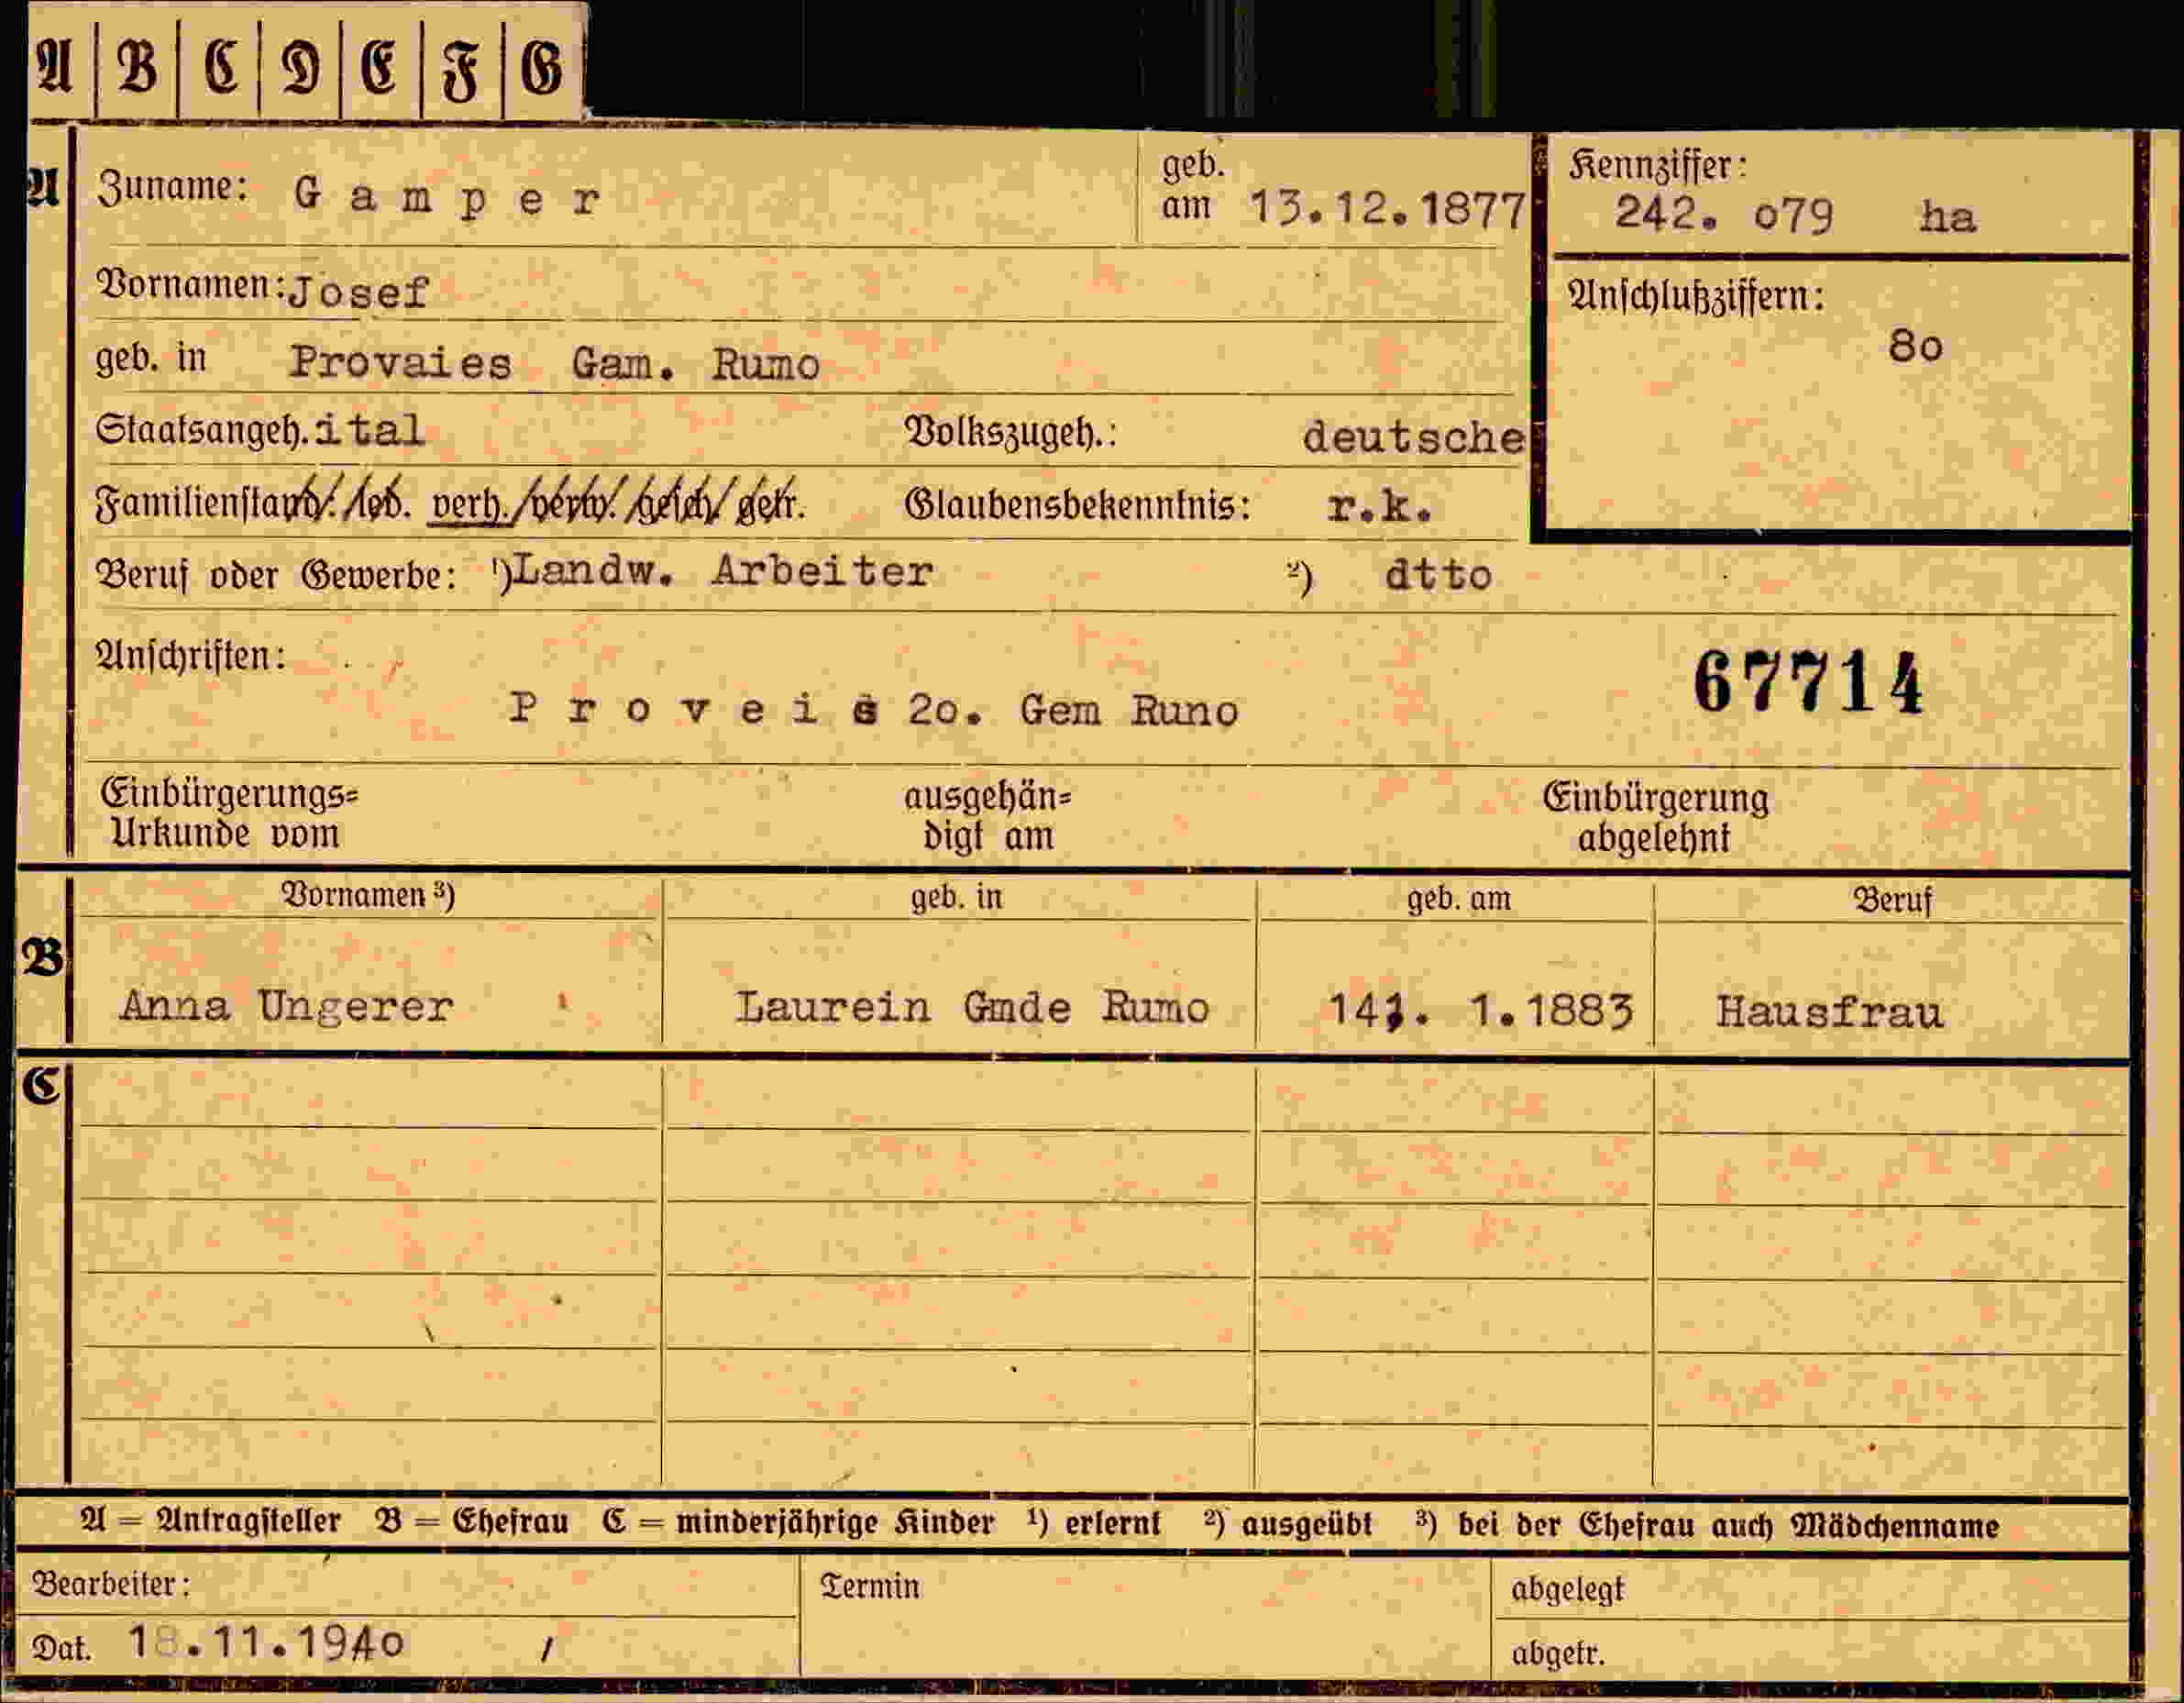 A B C D E F G
A Zuname: Gamper geb. am 13.12.1877 Kennziffer: 242. o79 ha
Vornamen: Josef Anschlußziffern:
80
geb. in Provaies Gam. Rumo
Staatsangeh. ital Volkszugeh.: deutsche
Familienstand: led. verh./verw. /gesch/ getr. Glaubensbekenntnis: r.k.
Beruf oder Gewerbe: ¹) Landw. Arbeiter ²) dtto
Anschriften: 67714
Proveis 2o. Gem Runo
Einbürgerungs= ausgehän= Einbürgerung
Urkunde vom digt am abgelehnt
Vornamen ³) geb. in geb. am Beruf
B Anna Ungerer Laurein Gmde Rumo 1.1883 Hausfrau
C
A = Antragsteller B = Ehefrau C = minderjährige Kinder ¹) erlernt ²) ausgeübt ³) bei der Ehefrau auch Mädchenname
Bearbeiter: Termin abgelegt
Dat. 18.11.194o / abgetr.